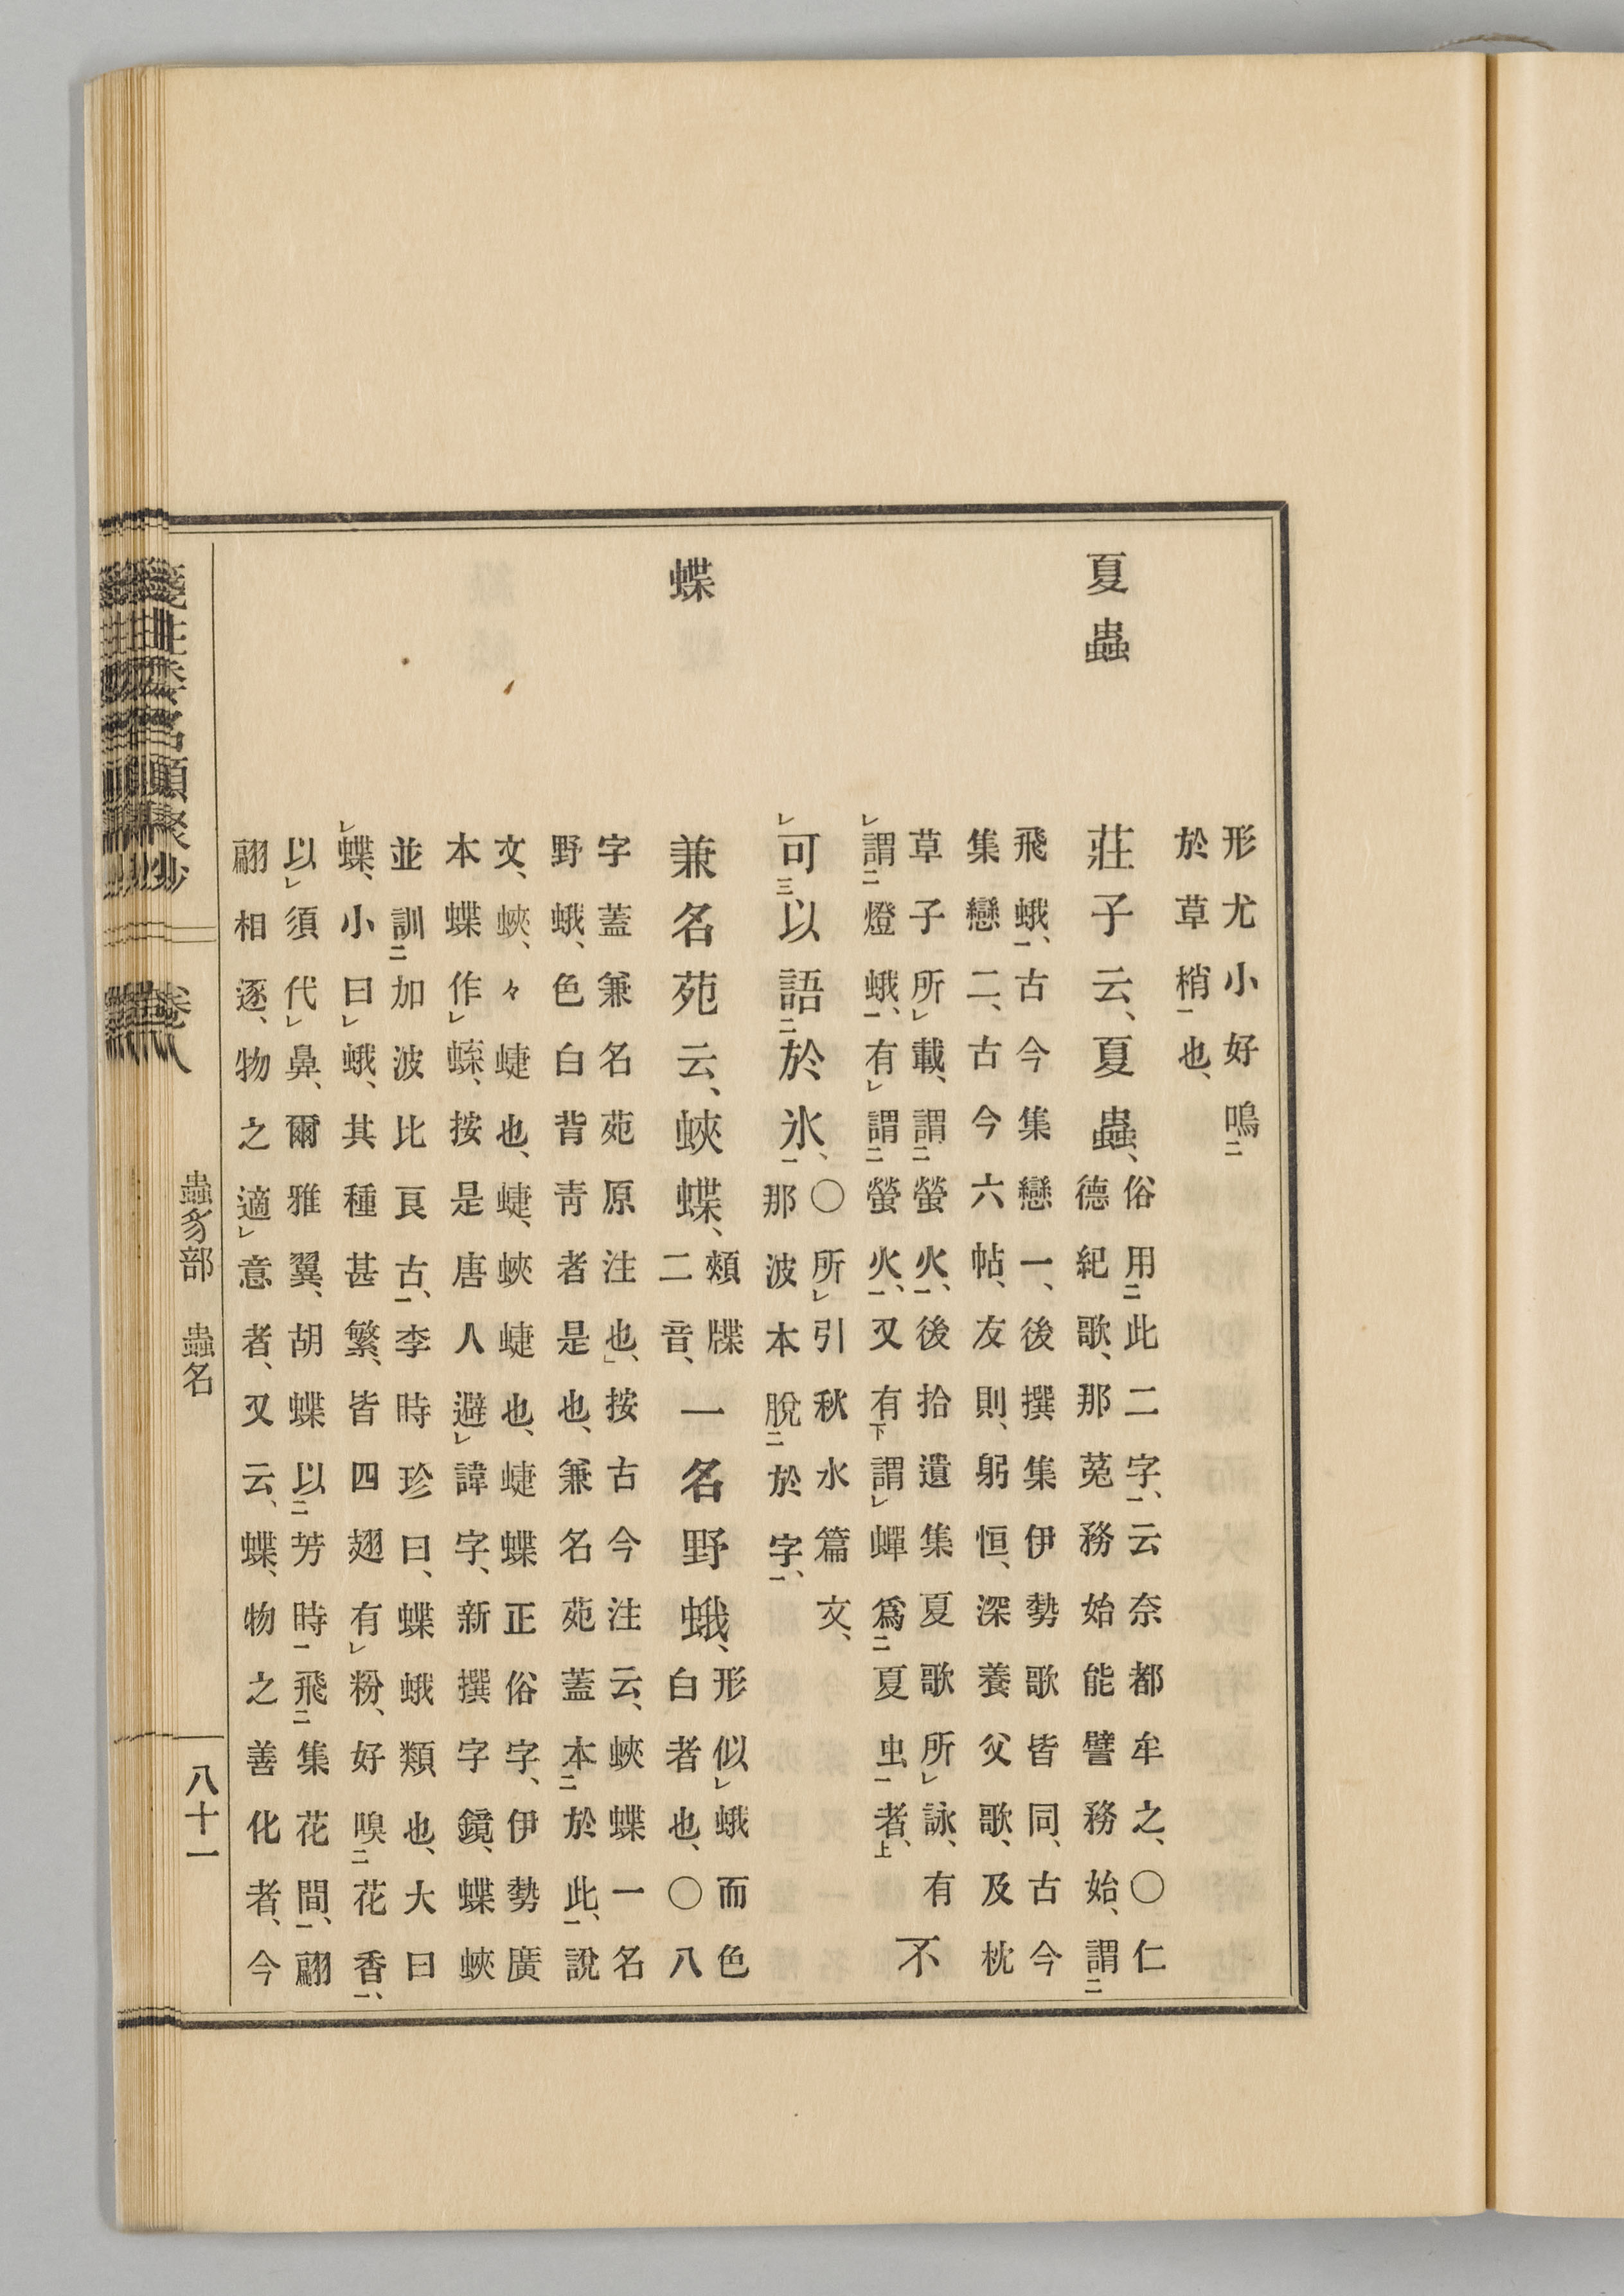 形尤小好鳴二
於草梢一也、
夏蟲
莊子云、夏蟲、俗用二此二字一、云奈都牟之、〇仁
德紀歌、那菟務始能譬務始、謂二
飛蛾一、古今集戀一、後撰集伊勢歌皆同、古今
集戀二、古今六帖、友則、躬恒、深養父歌、及枕
草子所レ載、謂二螢火一、後拾遺集夏歌所レ詠、有
レ謂二燈蛾一、有レ謂二螢火一、又有下謂レ蟬爲二夏虫一者上、
不
レ可三以語二於氷一、〇所レ引秋水篇文、
那波本脫二於字一、
蝶
兼名苑云、蛺蝶、頰牒
二音、
一名野蛾、形似レ蛾而色
白者也、〇八
字蓋兼名苑原注也、按古今注云、蛺蝶一名
野蛾、色白背靑者是也、兼名苑蓋本二於此一、說
文、蛺、々蜨也、蜨、蛺蜨也、蜨蝶正俗字、伊勢廣
本蝶作レ䗈、按是唐人避レ諱字、新撰字鏡、蝶蛺
並訓二加波比良古一、李時珍曰、蝶蛾類也、大曰
レ蝶、小曰レ蛾、其種甚繁、皆四翅有レ粉、好嗅二花香一、
以レ須代レ鼻、爾雅翼、胡蝶以二芳時一飛二集花間一、翩
翩相逐、物之適レ意者、又云、蝶、物之善化者、今
箋注倭名類聚抄 卷八 蟲豸部 蟲名 八十一